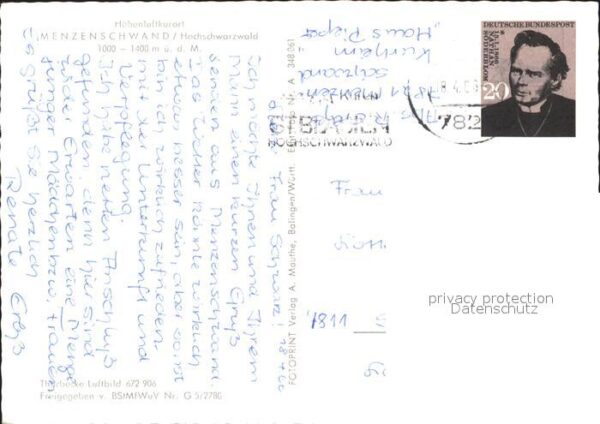 Höhenluftkurort
MENZENSCHWAND / Hochschwarzwald
1000 – 1400 m ü. d. M.
Liebe Frau
ich möchte Ihnen und Ihrem
Mann einen kurzen Gruß
senden aus Menzenschwand.
Das Wetter könnte wirklich
etwas besser sein, aber sonst
bin ich wirklich zufrieden
mit der Unterkunft und
Verpflegung.
Ich habe netten Anschluß
gefunden, denn hier sind
wider Erwarten eine Menge
junger Mädchen bzw. Frauen
Es grüßt Sie herzlich
Renate
Thorbecke Luftbild 672 906
Freigegeben v. BStMfWuV Nr. G 5/2780
FOTOPRINT Verlag A. Mauthe, Balingen/Württ. Echt Foto Nr. A 348061
Kurheim
"Haus Pieper"
7821 Menzen-
schwand
HOCHSCHWARZWALD
782
DEUTSCHE BUNDESPOST
NATHAN
SÖDERBLOM
20
Frau
7811
privacy protection
Datenschutz